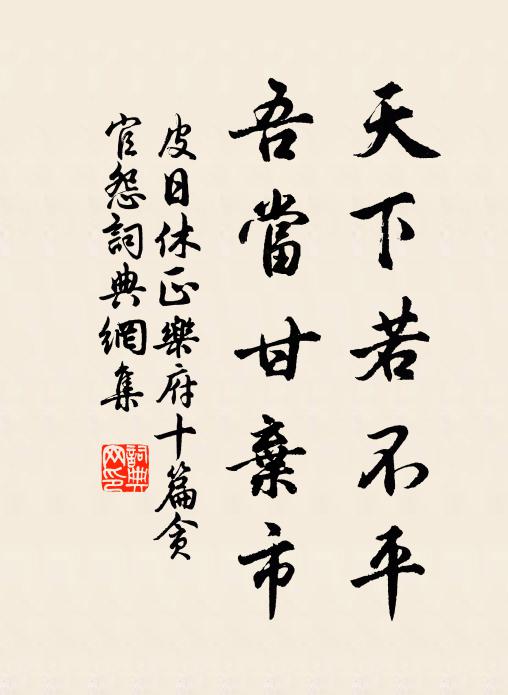 天下若不平
吾當甘棄市
皮日休正樂府十篇貪
官怨詞典網集
詞典
网印